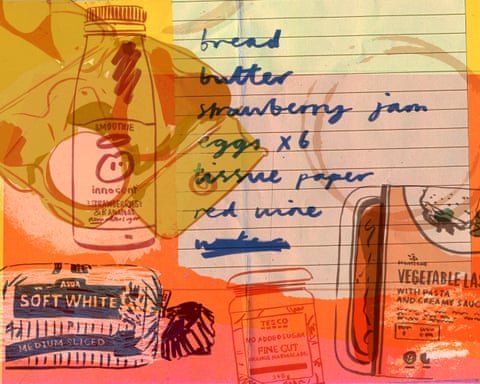 bread
butter
strawberry jam
eggs x6
tissue paper
red wine
SMOOTHIE
innocent
STRAWBERRIES
& BANANAS
ASDA
SOFT WHITE
MEDIUM SLICED
TESCO
NO ADDED SUGAR
FINE CUT
ORANGE MARMALADE
340g
VEGETABLE LAS
WITH PASTA
AND CREAMY SAUC